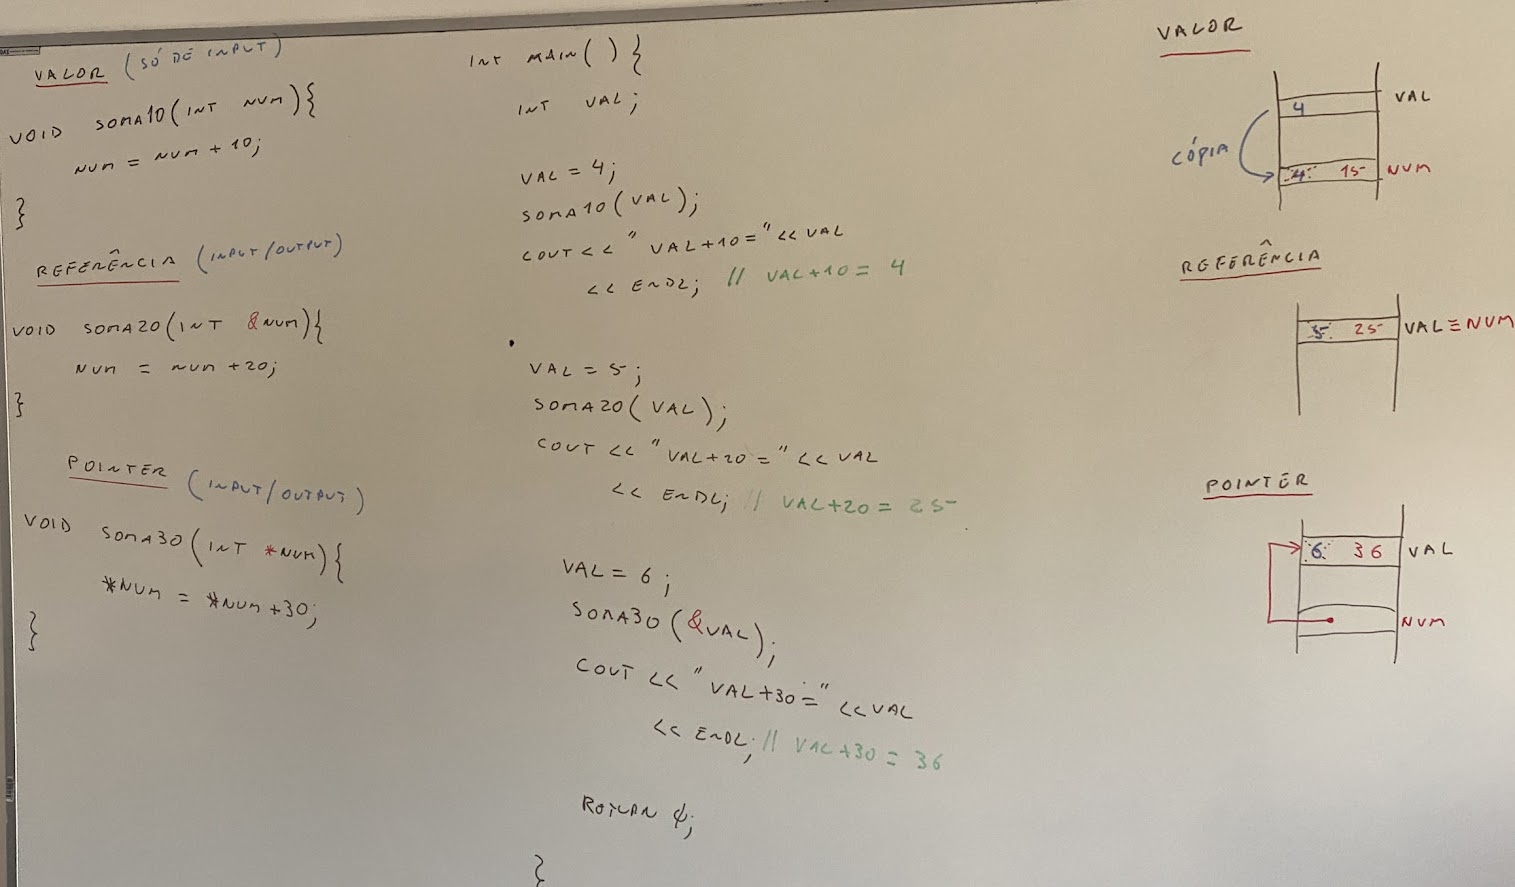 VALOR (SÓ DE INPUT)
VOID SOMA10(INT NUM){
NUM = NUM + 10;
}
REFERÊNCIA (INPUT/OUTPUT)
VOID SOMA20(INT &NUM){
NUM = NUM +20;
}
POINTER (INPUT/OUTPUT)
VOID SOMA30(INT *NUM){
*NUM = *NUM+30;
}
INT MAIN(){
INT VAL;
VAL = 4;
SOMA10(VAL);
COUT << " VAL+10="<< VAL
<< ENDL; // VAL+10= 4
VAL = 5;
SOMA20(VAL);
COUT << "VAL+20=" << VAL
<< ENDL; // VAL+20= 25
VAL = 6;
SOMA30(&VAL);
COUT << "VAL+30=" <<VAL
<< ENDL; // VAL+30 = 36
RETURN 0;
}
VALOR
4 VAL
CÓPIA
4 15 NUM
REFERÊNCIA
5 25 VAL≡NUM
POINTER
6 36 VAL
NUM